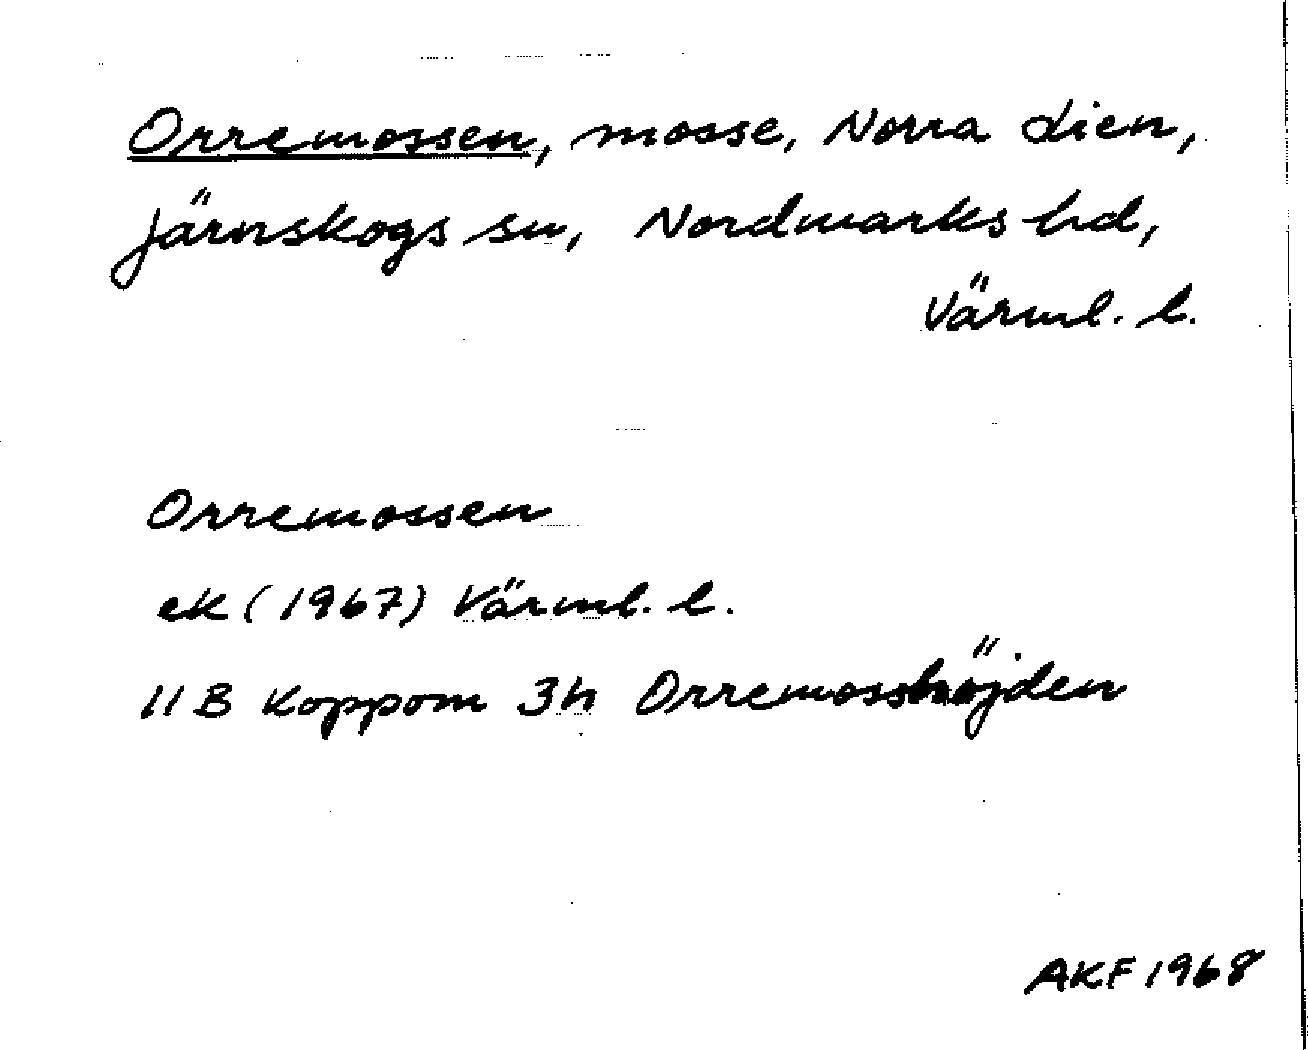 Orremossen, mosse, Norra Lien,
Järnskogs sn, Nordmarks hd,
Värml. l.
Orremossen
ek (1967) Värml. l.
11 B Koppom 3h Orremosshöjden
AKF 1968